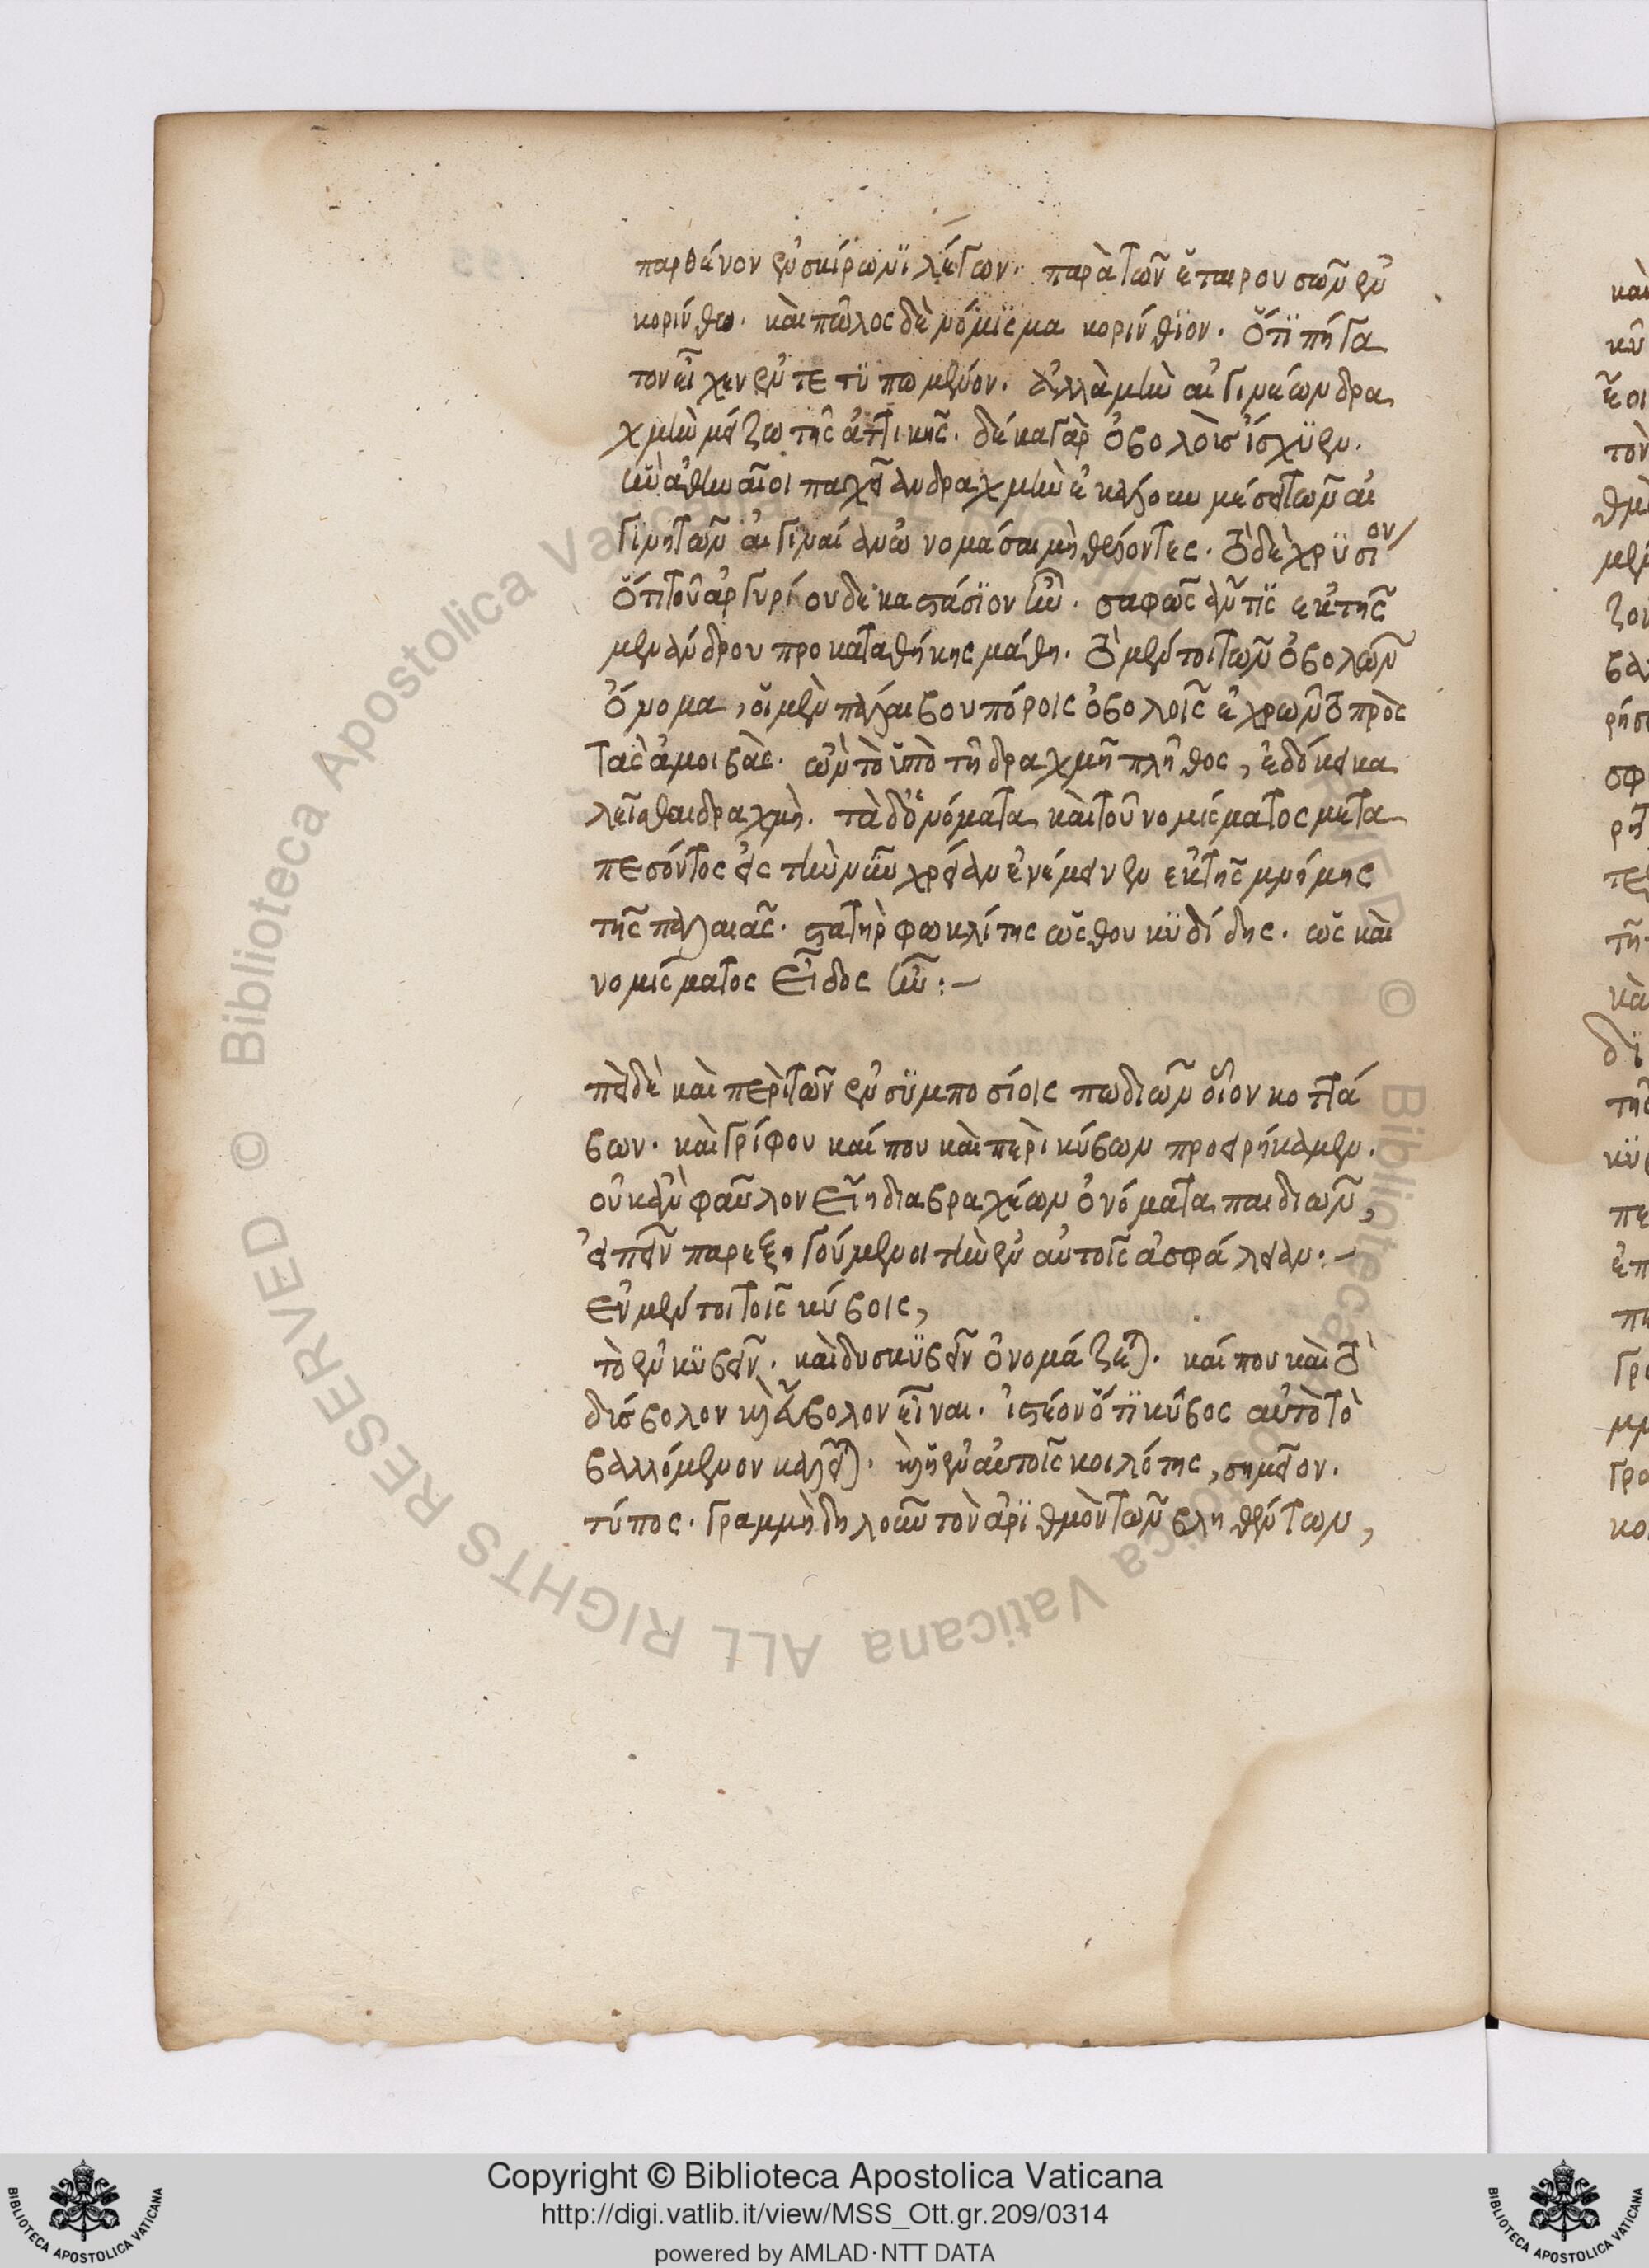 παρθένον ἐν σκίρωνϊ λέγων. παρὰ τῶν ἑταιρουσῶν ἐν
κορίνθω. καὶ πῶλος δὲ νόμϊσμα κορίνθϊον. ὅτϊ πήγα
τον εἶχεν ἐντετϋπωμένον. ἀλλὰ μὴν αἰγιναίων δρα
χμὴν μείζω τῆς ἀττικῆς. δέκα γὰρ ὀβολοὺς ἰσχϋεν.
ἣν ἀθηναῖοι παχεῖαν δραχμὴν ἐκάλουν μίσει τῶν αἰ
γινητῶν αἰγιναίαν ὠνομάσαι μὴ θέλοντες. τὸ δὲ χρϋσίον
ὅτι τοῦ ἀργυρίου δεκαστάσϊον ἦν. σαφῶς ἄν τϊς ἐκ τῆς
μενάνδρου προκαταθήκης μάθη. τὸ μέντοι τῶν ὀβολῶν
ὄνομα, οἱ μὲν πάλαι βουπόροις ὀβολοῖς ἐχρῶντο πρὸς
τὰς ἀμοιβάς. ὧν τὸ ὑπὸ τῆ δραχμῆ πλῆθος, ἐδόκει κα
λεῖσθαι δραχμή. τὰ δ' ὀνόματα καὶ τοῦ νομίσματος μετα
πεσόντος εἰς τὴν νῦν χρείαν ἐνέμεινεν ἐκ τῆς μνήμης
τῆς παλαιᾶς. στατὴρ φωκλίτης ὡς θουκϋδίδης. ὡς καὶ
νομίσματος εἶδος ἦν:–
πεὶ δὲ καὶ περὶ τῶν ἐν σϋμποσίοις πωδιῶν οἷον κοττά
βων. καὶ γρίφου καί που καὶ περὶ κύβων προειρήκαμεν.
οὐκ ἂν φαῦλον εἴη διαβραχέων ὀνόματα παιδιῶν,
εἰπεῖν παρεξηγούμενοι τὴν ἐν αὐτοῖς ἀσφάλειαν:–
ἐν μέντοι τοῖς κύβοις,
τὸ ἐν κϋβεῖν. καὶ δυσκϋβεῖν ὀνομάζεται. καί που καὶ τὸ
δίσβολον καὶ ἄβολον εἶναι. ἰστέον ὅτϊ κῦβος αὐτὸ τὸ
βαλλόμενον καλεῖται. καὶ ἡ ἐν αὐτοῖς κοιλότης, σημεῖον.
τύπος. γραμμὴ δηλοῦν τὸν ἀρϊθμὸν τῶν βληθέντων,
Copyright © Biblioteca Apostolica Vaticana
http://digi.vatlib.it/view/MSS_Ott.gr.209/0314
powered by AMLAD·NTT DATA